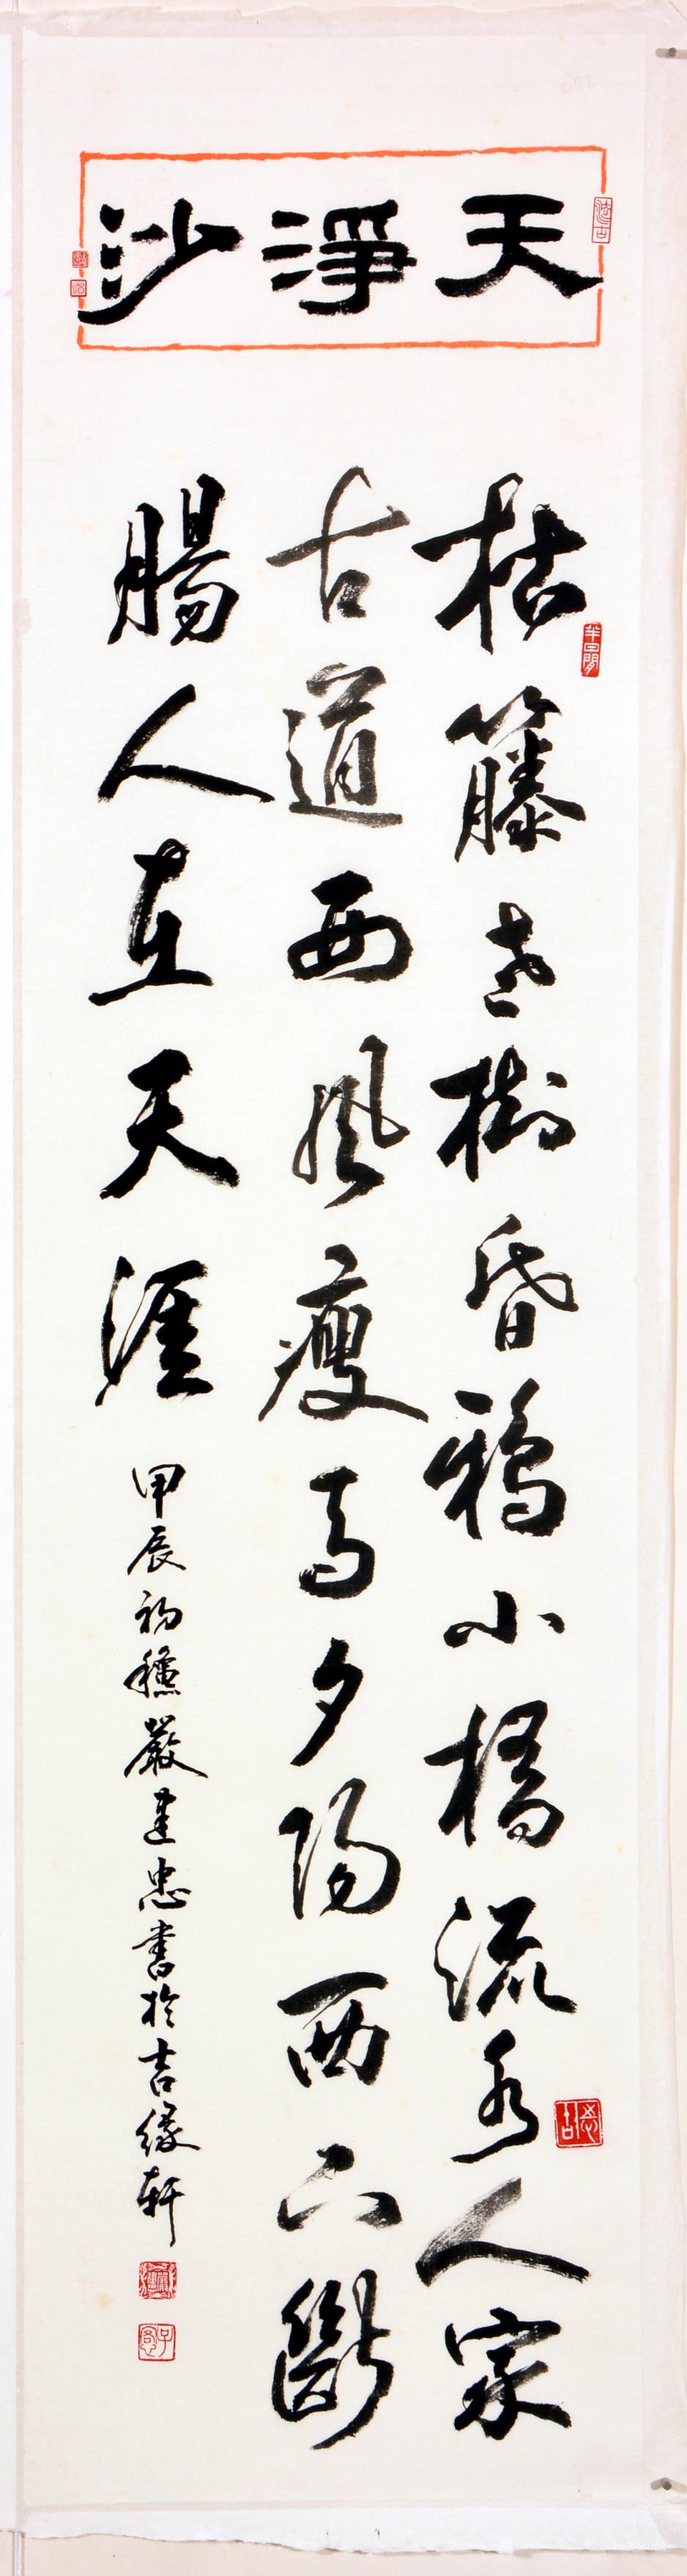 天淨沙
枯籐老樹昏鴉小橋流水人家
古道西風瘦馬夕陽西下斷
腸人在天涯
甲辰初穐嚴建忠書於吉緣軒